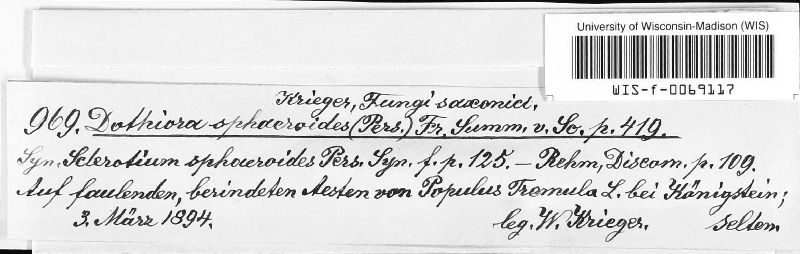 University of Wisconsin-Madison (WIS)
WIS-f-0069117
Krieger, Fungi saxonici.
969. Dothiora sphaeroides (Pers.) Fr. Summ. v. Sc. p. 419.
Syn. Sclerotium sphaeroides Pers. Syn. f. p. 125. — Rehm, Discom. p. 109.
Auf faulenden, berindeten Aesten von Populus Tremula L. bei Königstein;
3. März 1894. leg. W. Krieger. selten.